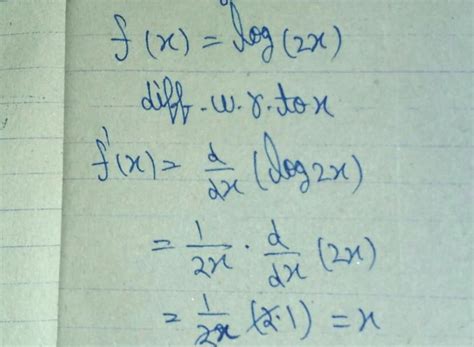 f(x) = log(2x)
diff. w. r. to x
f'(x) = d/dx (log 2x)
= 1/2x · d/dx (2x)
= 1/2x (2·1) = x